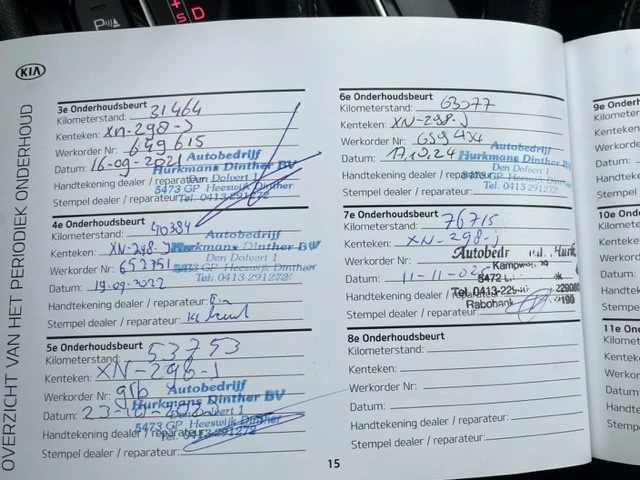 P
S D
KIA
OVERZICHT VAN HET PERIODIEK ONDERHOUD
3e Onderhoudsbeurt
Kilometerstand: 31464
Kenteken: XN-298-J
Werkorder Nr: 649615
Datum: 16-09-2021
Handtekening dealer / reparateur:
Stempel dealer / reparateur:
Autobedrijf
Hurkmans Dinther BV
Den Dolvert 1
5473 GP Heeswijk Dinther
Tel. 0413-291272
4e Onderhoudsbeurt
Kilometerstand: 40384
Kenteken: XN-298-J
Werkorder Nr: 652751
Datum: 19-09-2022
Handtekening dealer / reparateur:
Stempel dealer / reparateur:
Hurkmans Dinther BV
Den Dolvert 1
5473 GP Heeswijk Dinther
Tel. 0413-291272
5e Onderhoudsbeurt
Kilometerstand: 53753
Kenteken: XN-298-J
Werkorder Nr:
Datum: 23-10-
Handtekening dealer / reparateur:
Stempel dealer / reparateur:
Autobedrijf
Hurkmans Dinther BV
Den Dolvert 1
5473 GP Heeswijk Dinther
Tel. 0413-291272
6e Onderhoudsbeurt
Kilometerstand: 63077
Kenteken: XN-298-J
Werkorder Nr:
Datum:
Handtekening dealer / reparateur:
Stempel dealer / reparateur:
Autobedrijf
Hurkmans Dinther BV
Den Dolvert 1
5473 GP Heeswijk Dinther
Tel. 0413-291272
7e Onderhoudsbeurt
Kilometerstand: 76715
Kenteken: XN-298-j
Werkorder Nr:
Datum: 11-11-025
Handtekening dealer / reparateur:
Stempel dealer / reparateur:
Rabobank
8e Onderhoudsbeurt
Kilometerstand:
Kenteken:
Werkorder Nr:
Datum:
Handtekening dealer / reparateur:
Stempel dealer / reparateur:
15
9e Onder
Kilometers
Kenteken:
Werkorder
Datum:
Handteken
Stempel de
10e Onde
Kilometer
Kenteken
Werkorde
Datum:
Handteke
Stempel
11e On
Kilomete
Kenteke
Werkor
Datum:
Handte
Stempe